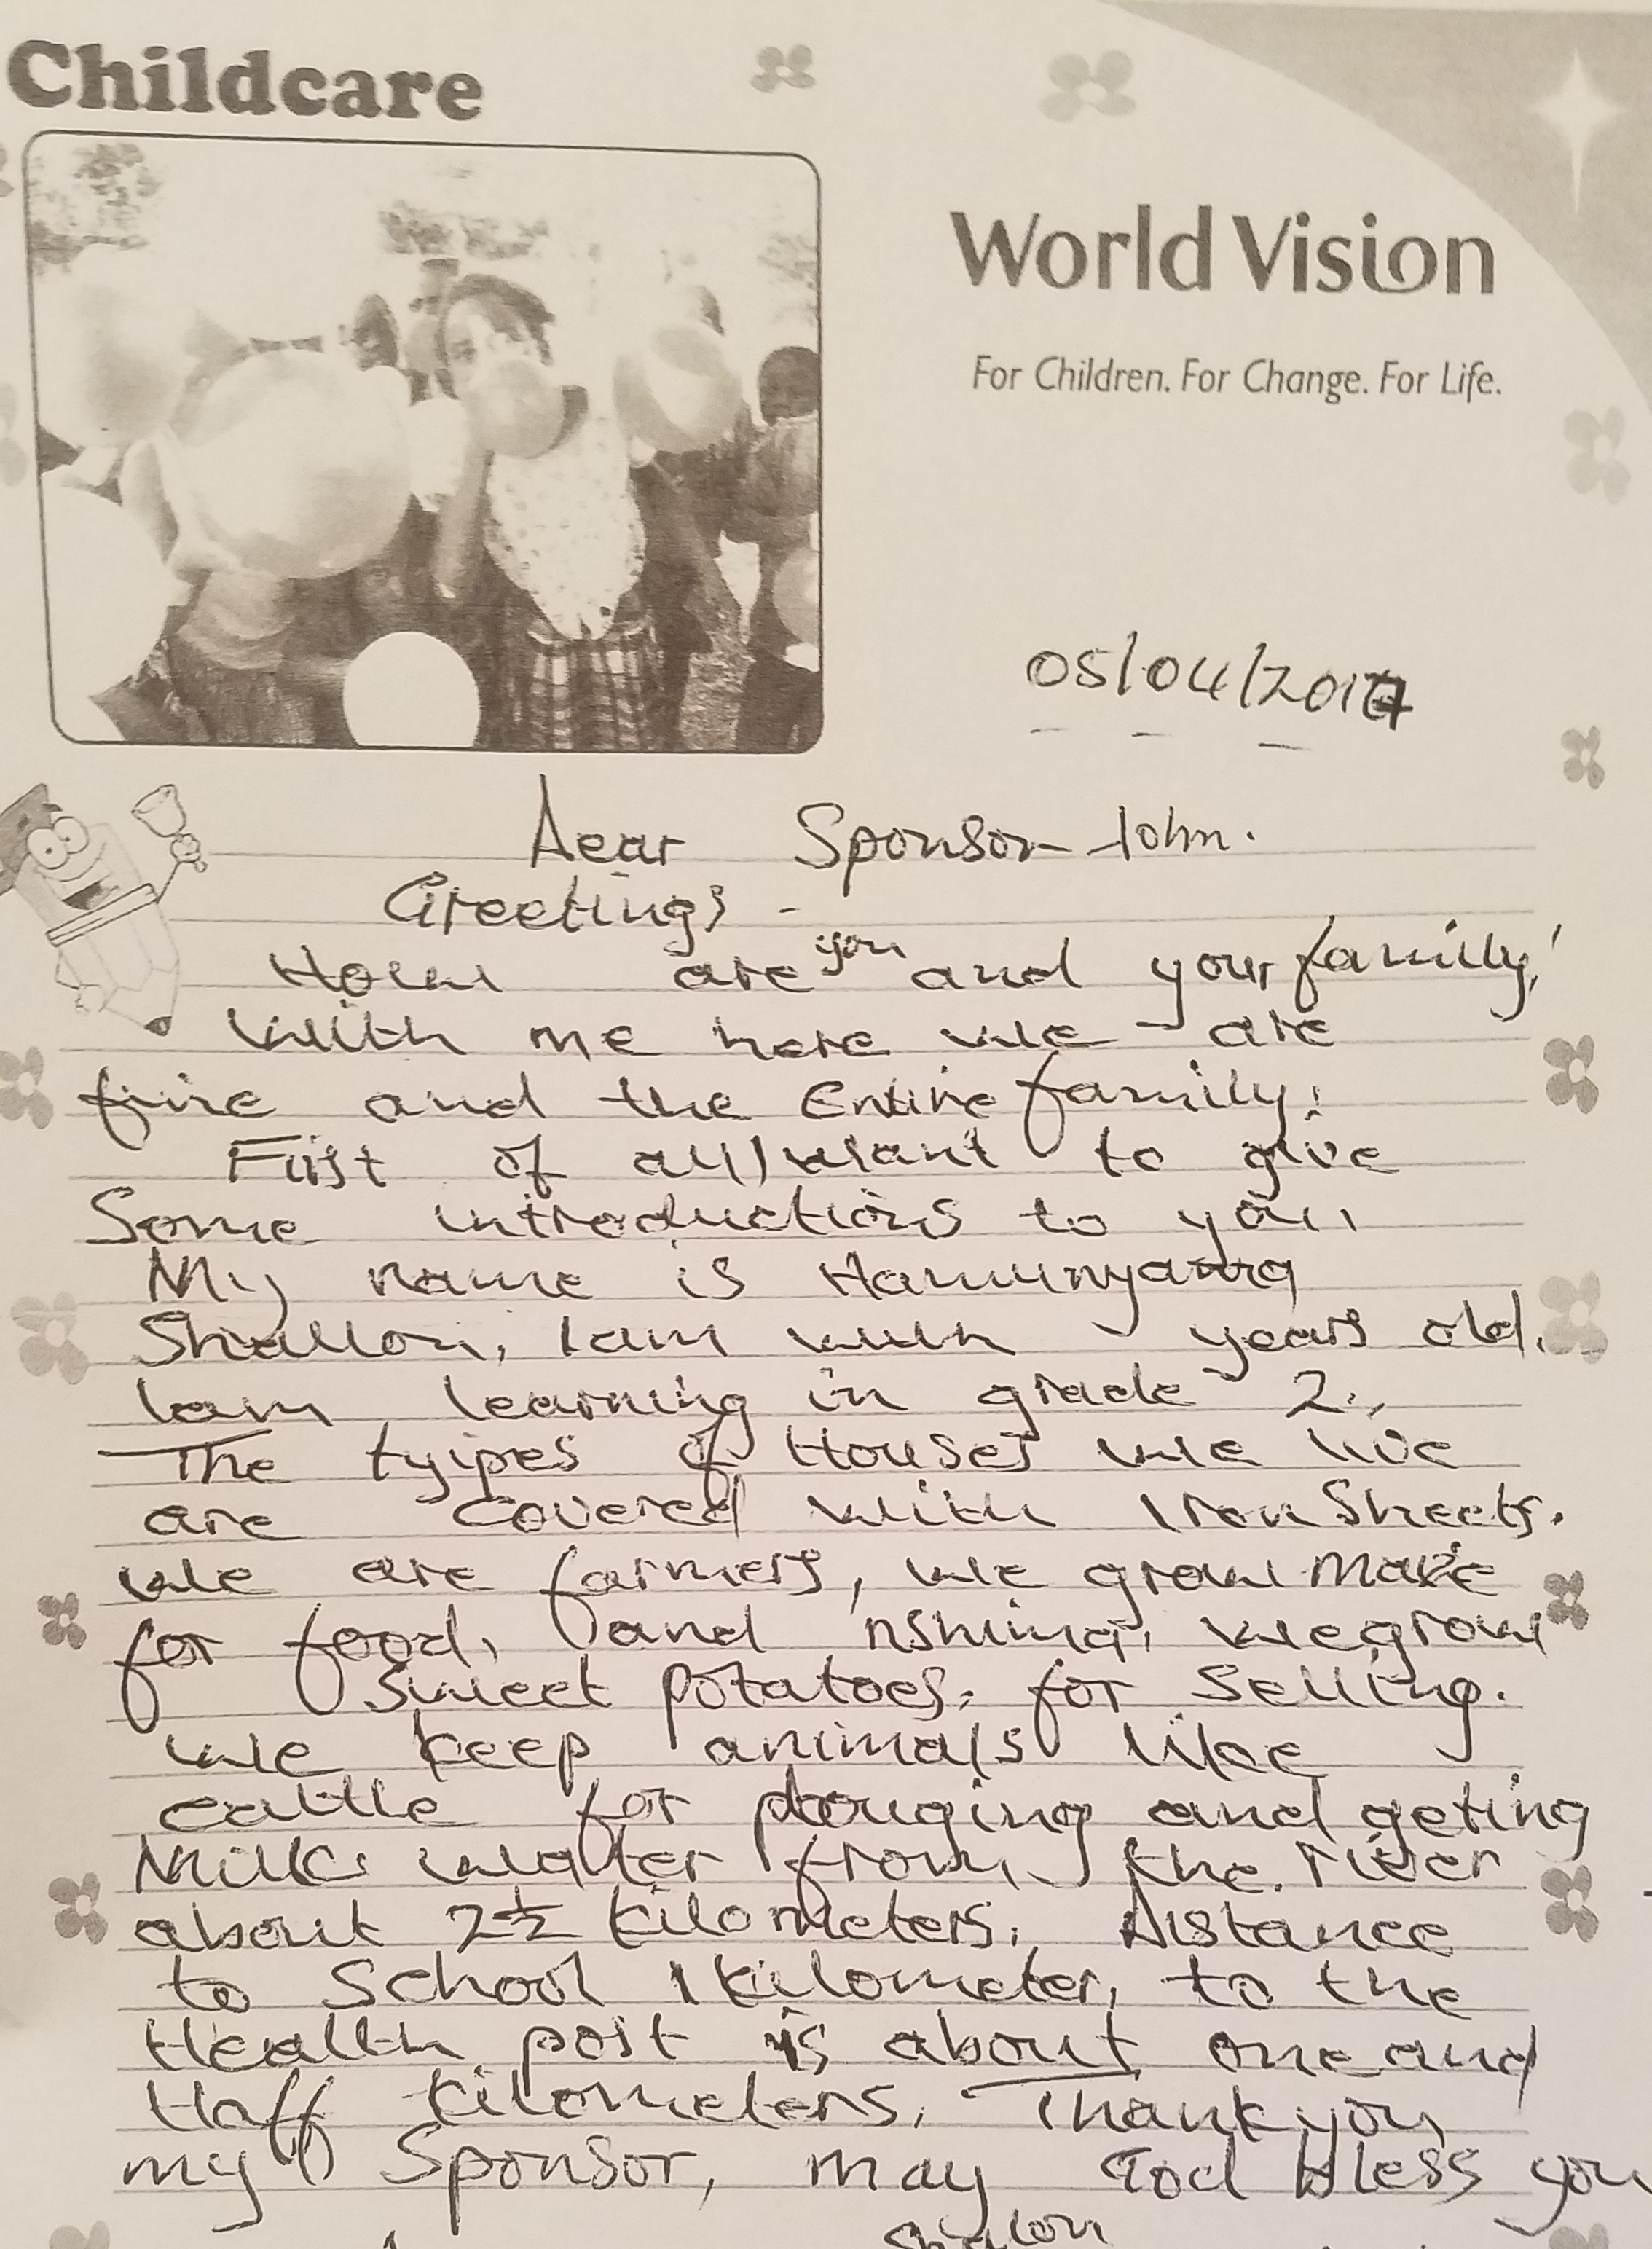 Childcare
World Vision
For Children. For Change. For Life.
05/04/2017
Dear Sponsor John.
Greetings -
How are you and your familly!
With me here we are
fine and the Entire family.
First of all I want to give
Some introductions to you,
My name is
Shallon, I am years old.
Iam learning in grade 2.
The tyipes of Houses we live
are covered with Iron Sheets.
We are farmers, we grow Maize
for food, and nshima, we grow
Sweet potatoes, for Selling.
We keep animals like
cattle for plouging and geting
Milk. Watter from the river
about 2½ kilometers. Distance
to School 1 kilometer, to the
Health post is about one and
Haff kilometers. Thank you
my Sponsor, may God bless you